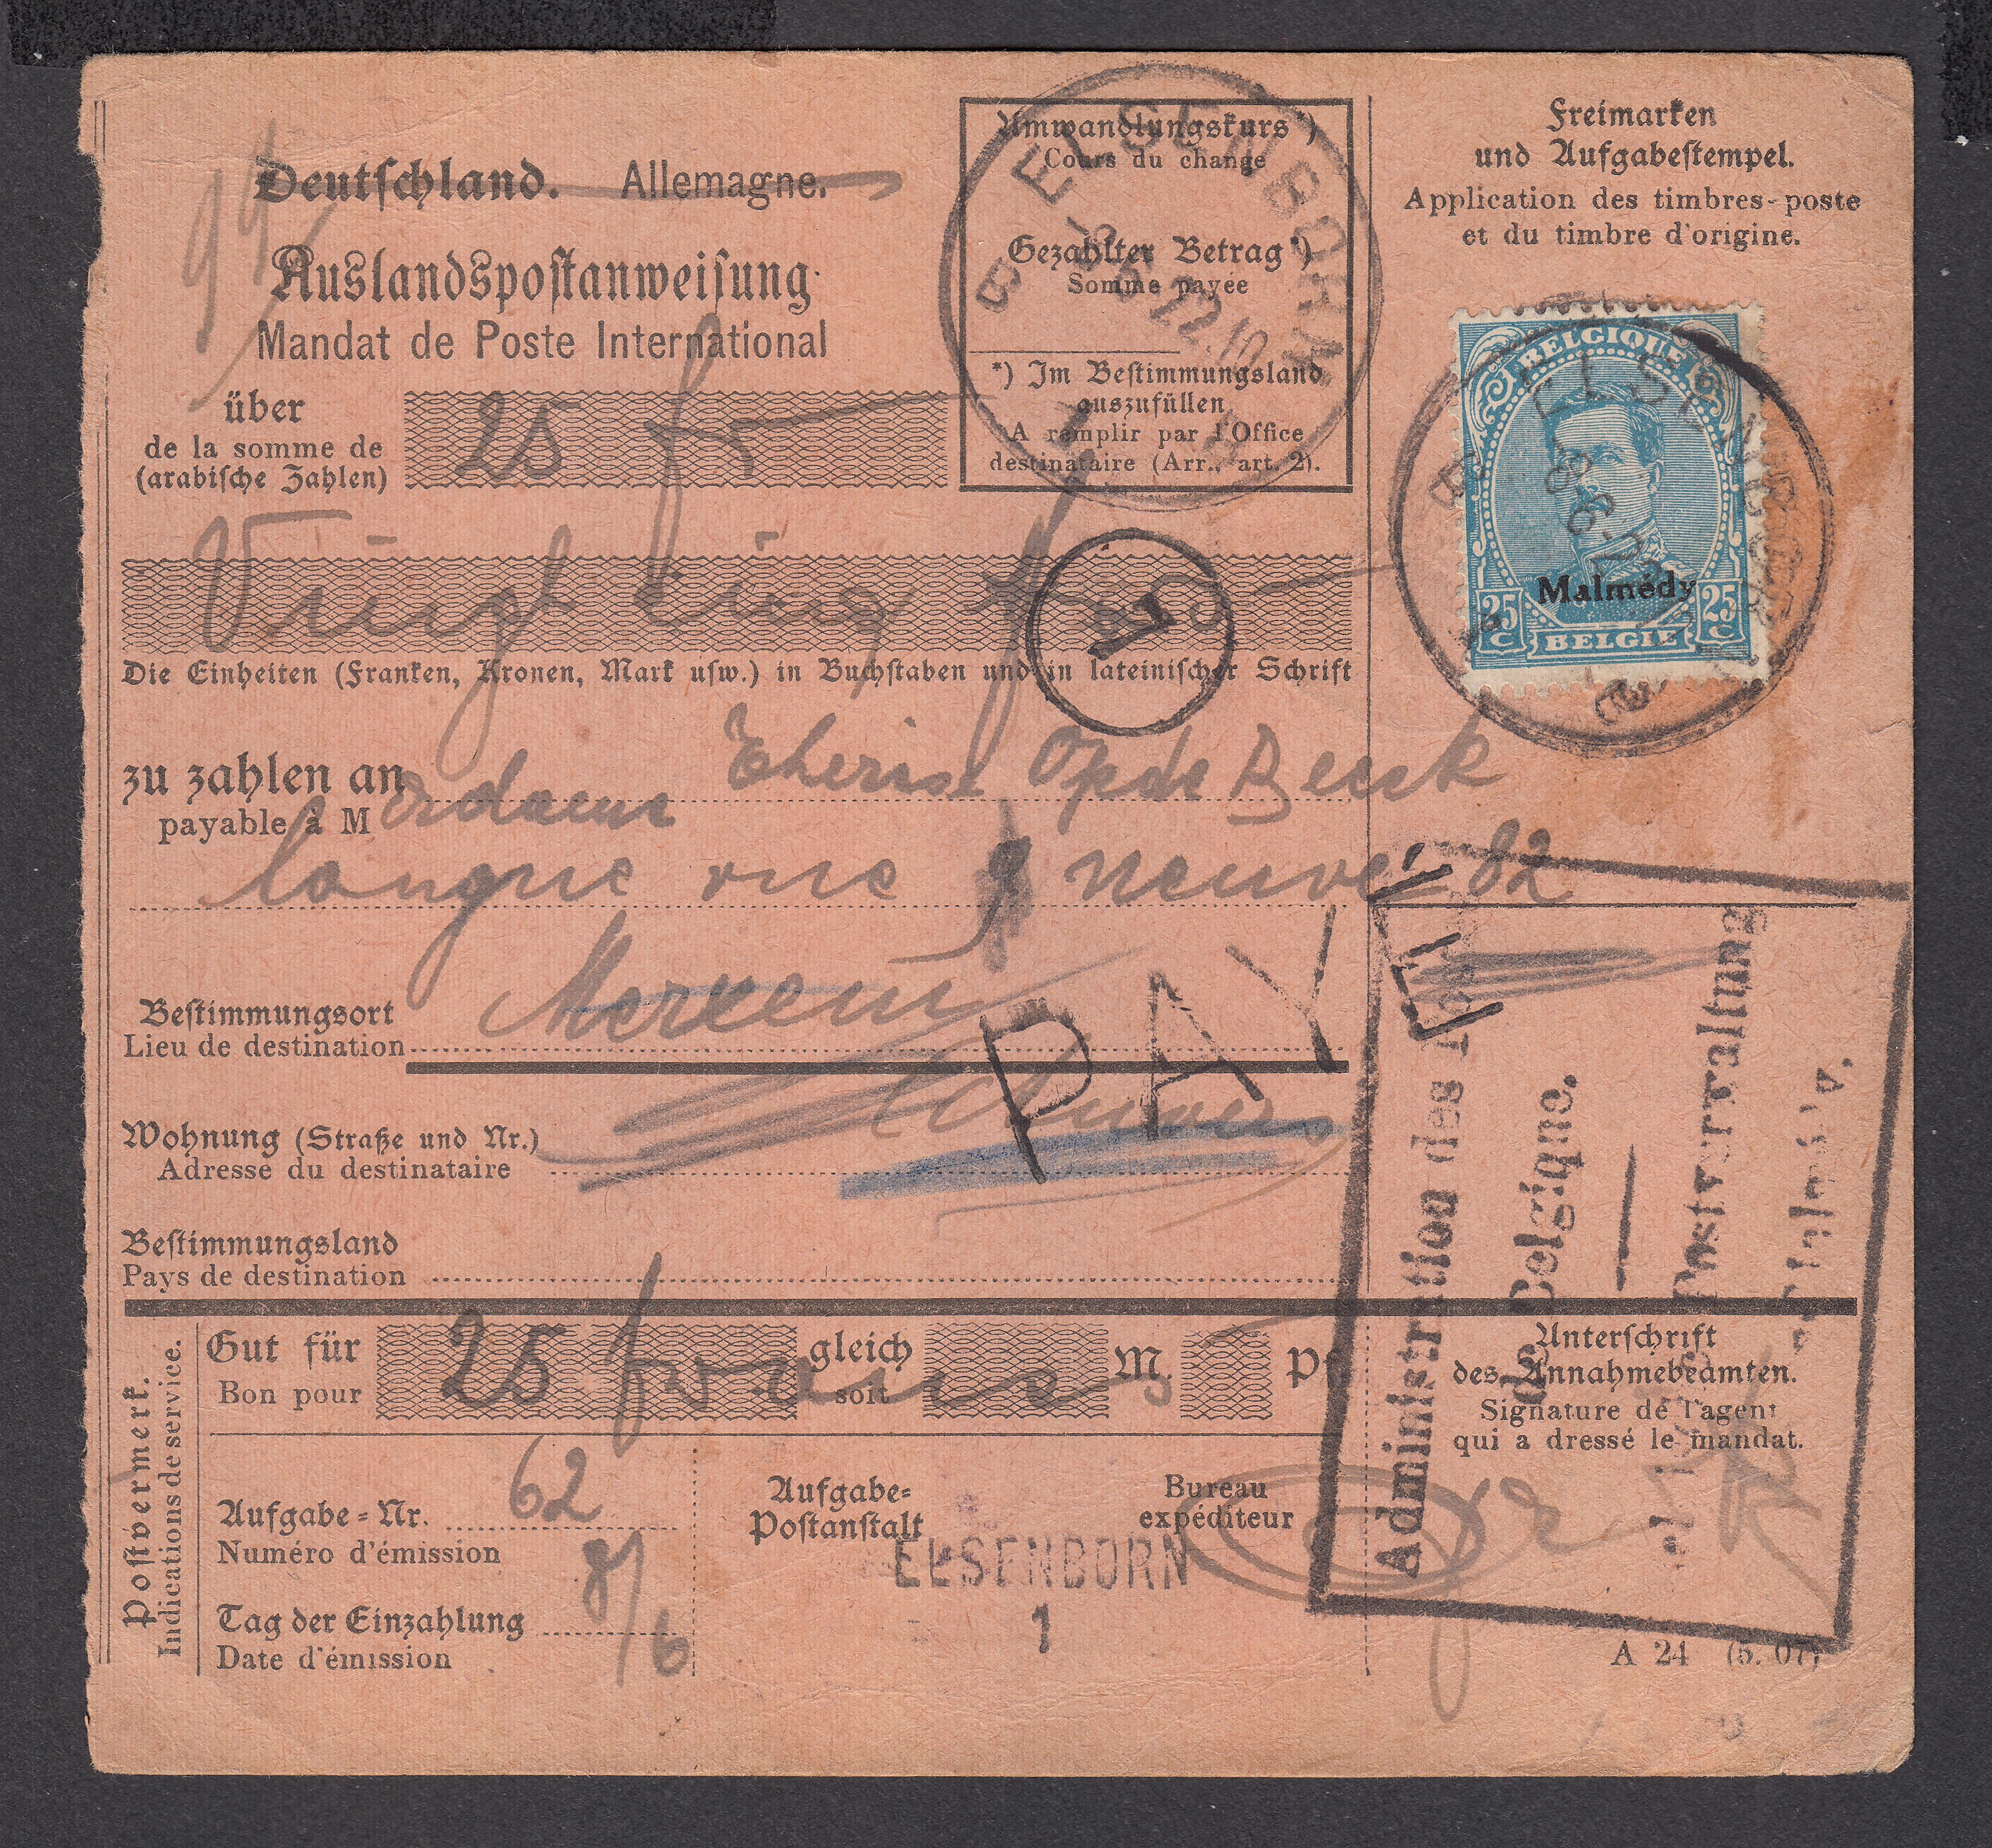 Deutschland. Allemagne.
Auslandspostanweisung
Mandat de Poste International
über
de la somme de
(arabische Zahlen)
25 fr
Umwandlungskurs*)
Cours du change
Gezahlter Betrag*)
Somme payée
*) Im Bestimmungsland
auszufüllen
A remplir par l'Office
destinataire (Arr., art. 2).
ELSENBORN
Freimarken
und Aufgabestempel.
Application des timbres-poste
et du timbre d'origine.
BELGIQUE
Malmédy
25 C 25 C
BELGIË
ELSENBORN
Vingt cinq
Die Einheiten (Franken, Kronen, Mark usw.) in Buchstaben und in lateinischer Schrift
zu zahlen an
payable à Madame Op de Beeck
longue rue neuve 82
Merxem
Bestimmungsort
Lieu de destination
PAYE
Anvers
Wohnung (Straße und Nr.)
Adresse du destinataire
Bestimmungsland
Pays de destination
Administration des
de Belgique.
Postverwaltung
Postvermerk.
Indications de service.
Gut für
Bon pour
25 francs
gleich
soit
M.
Pf.
Unterschrift
des Annahmebeamten.
Signature de l'agent
qui a dressé le mandat.
Aufgabe-Nr. 62
Numéro d'émission
Tag der Einzahlung 8/6
Date d'émission
Aufgabe-
Postanstalt
Bureau
expéditeur
ELSENBORN
1
A 24 (5. 07)